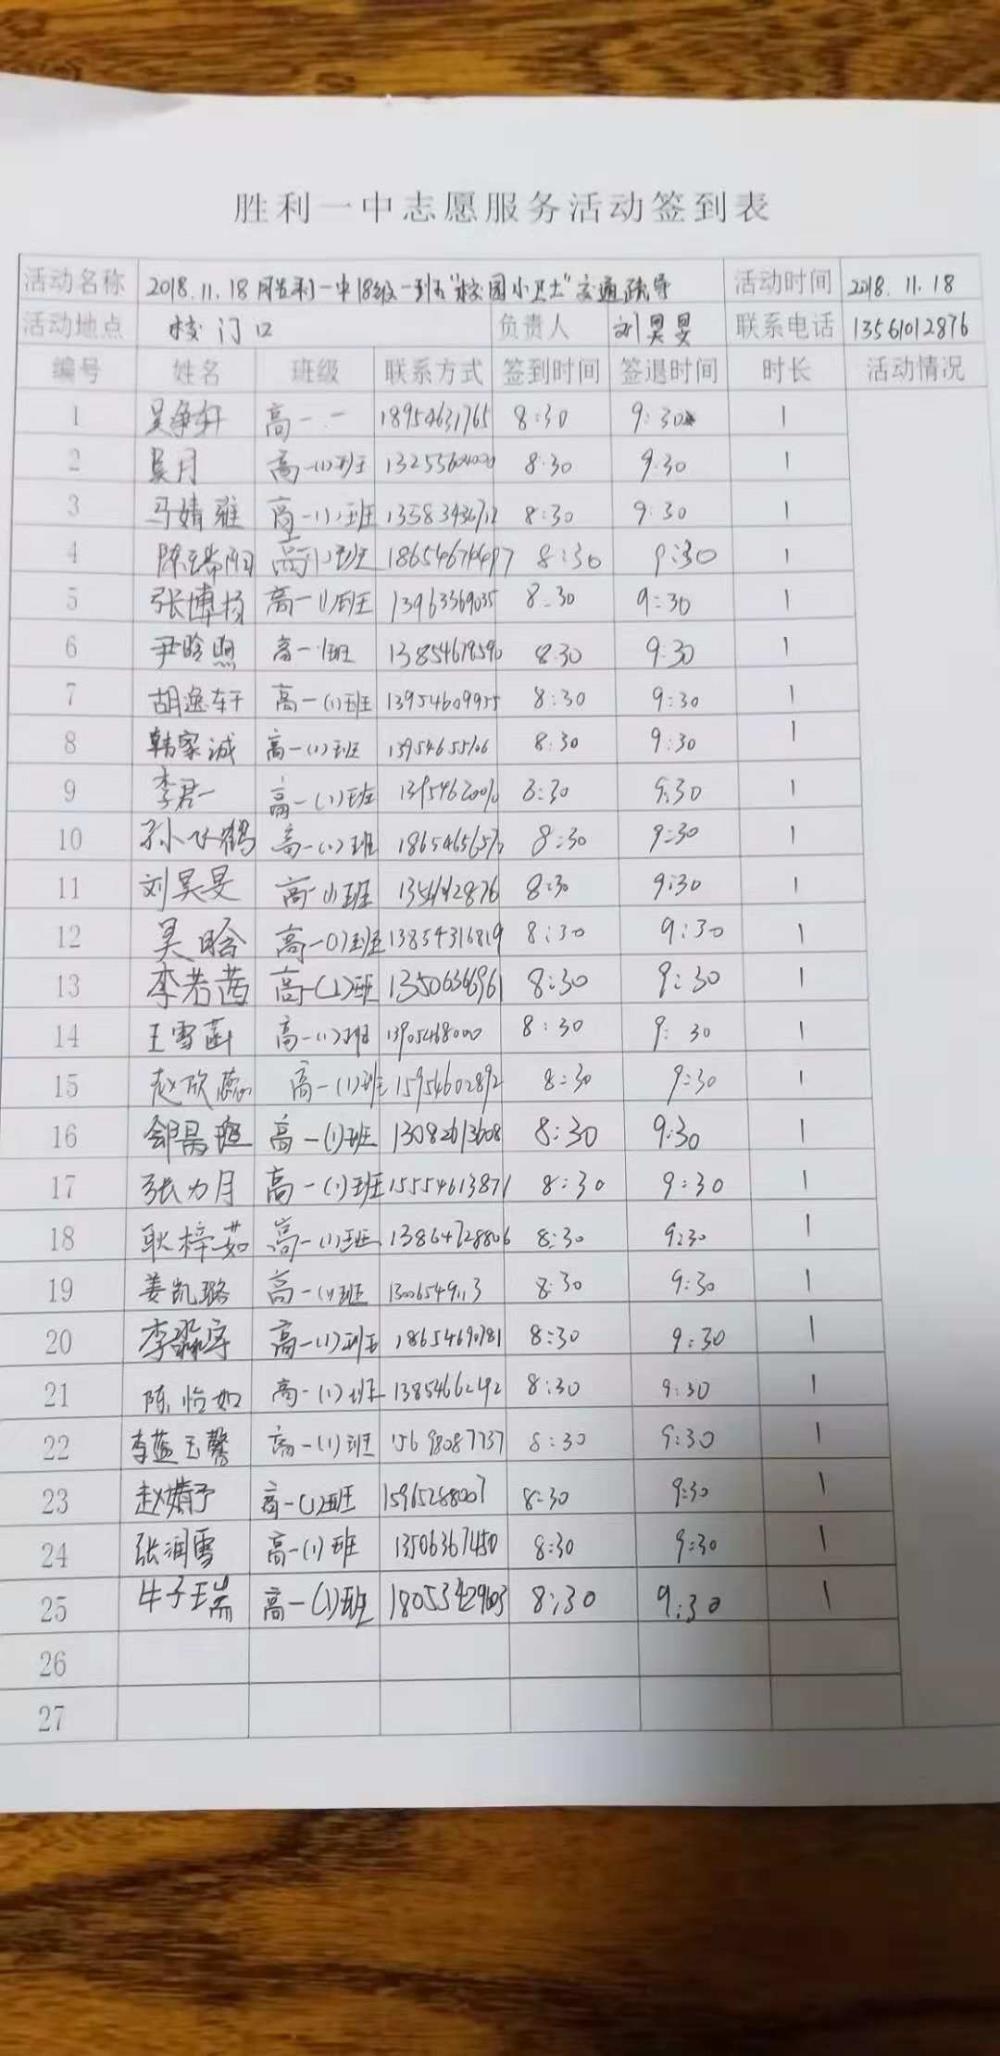 胜利一中志愿服务活动签到表
活动名称 2018.11.18胜利一中18级一班"校园小卫士"交通疏导 活动时间 2018.11.18
活动地点 校门口 负责人 刘昊旻 联系电话 13561012876
编号 姓名 班级 联系方式 签到时间 签退时间 时长 活动情况
1 吴争轩 高一一 18954631765 8:30 9:30 1
2 高一(1)班 8:30 9:30 1
3 马婧雅 高一(1)班 8:30 9:30 1
4 陈瑞阳 8:30 9:30 1
5 张博扬 高一(1)班 13963369035 8:30 9:30 1
6 尹晗煦 高一1班 8:30 9:30 1
7 胡逸轩 高一(1)班 13954609955 8:30 9:30 1
8 韩家诚 高一(1)班 8:30 9:30 1
9 李君一 高一(1)班 8:30 9:30 1
10 孙飞鹤 高一(1)班 8:30 9:30 1
11 刘昊旻 高一(1)班 8:30 9:30 1
12 吴晗 高一(1)班 13854316819 8:30 9:30 1
13 李若茜 高一(1)班 8:30 9:30 1
14 王雪菡 高一(1)班 13905468000 8:30 9:30 1
15 高一(1)班 15954602892 8:30 9:30 1
16 高一(1)班 13082613608 8:30 9:30 1
17 张力月 高一(1)班 15554613871 8:30 9:30 1
18 耿梓茹 高一(1)班 13864728806 8:30 9:30 1
19 姜凯璐 高一(1)班 8:30 9:30 1
20 高一(1)班 18654690781 8:30 9:30 1
21 陈怡如 高一(1)班 13854662492 8:30 9:30 1
22 李蓝玉馨 高一(1)班 15698087737 8:30 9:30 1
23 赵婧予 高一(1)班 8:30 9:30 1
24 张润雪 高一(1)班 13506367450 8:30 9:30 1
25 牛子瑞 高一(1)班 8:30 9:30 1
26
27